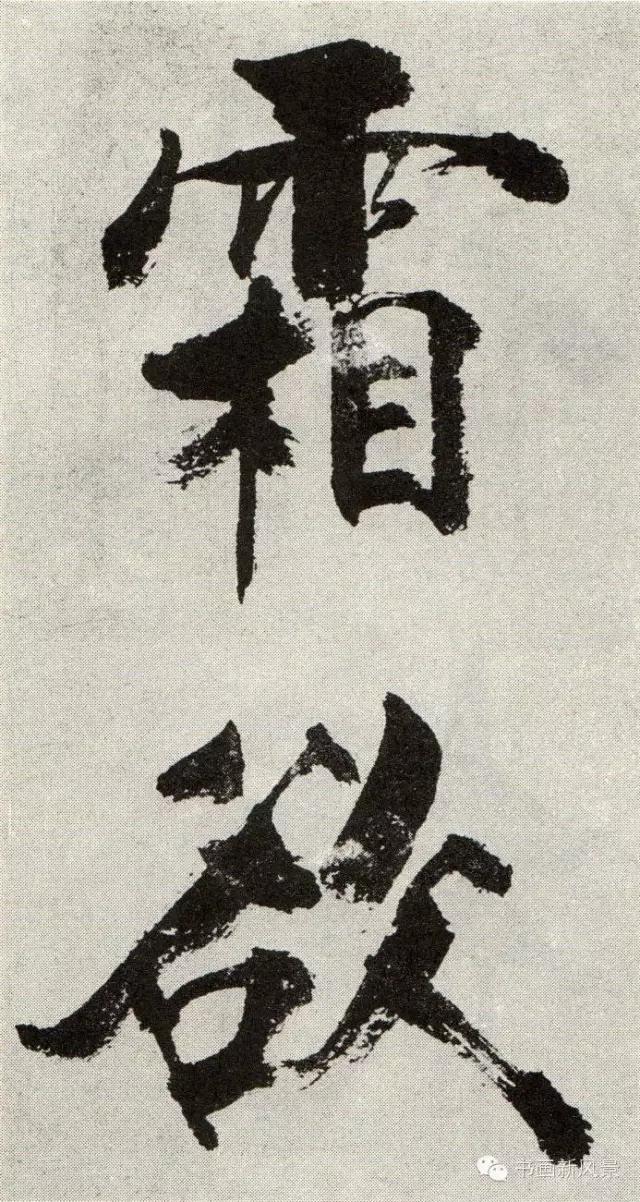 霜
欲
书画新风景